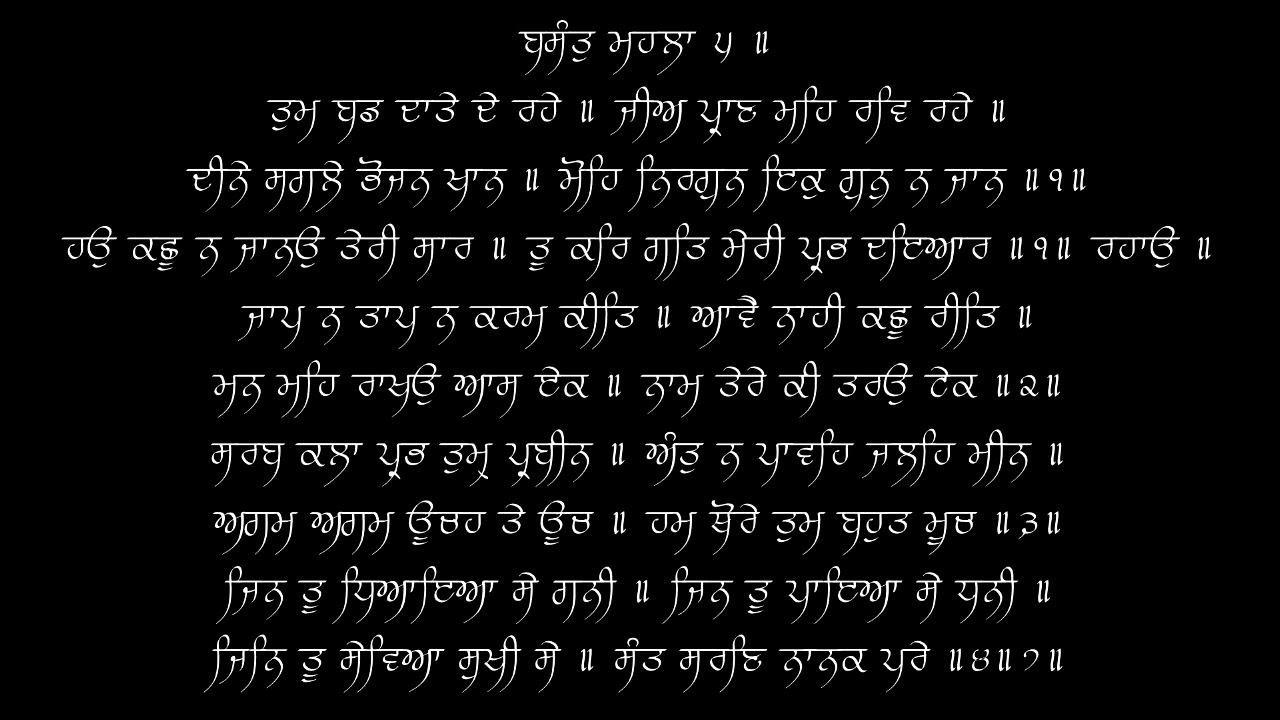 ਬਸੰਤੁ ਮਹਲਾ ੫ ॥
ਤੁਮ ਬਡ ਦਾਤੇ ਦੇ ਰਹੇ ॥ ਜੀਅ ਪ੍ਰਾਣ ਮਹਿ ਰਵਿ ਰਹੇ ॥
ਦੀਨੇ ਸਗਲੇ ਭੋਜਨ ਖਾਨ ॥ ਮੋਹਿ ਨਿਰਗੁਨ ਇਕੁ ਗੁਨੁ ਨ ਜਾਨ ॥੧॥
ਹਉ ਕਛੂ ਨ ਜਾਨਉ ਤੇਰੀ ਸਾਰ ॥ ਤੂ ਕਰਿ ਗਤਿ ਮੇਰੀ ਪ੍ਰਭ ਦਇਆਰ ॥੧॥ ਰਹਾਉ ॥
ਜਾਪ ਨ ਤਾਪ ਨ ਕਰਮ ਕੀਤਿ ॥ ਆਵੈ ਨਾਹੀ ਕਛੂ ਰੀਤਿ ॥
ਮਨ ਮਹਿ ਰਾਖਉ ਆਸ ਏਕ ॥ ਨਾਮ ਤੇਰੇ ਕੀ ਤਰਉ ਟੇਕ ॥੨॥
ਸਰਬ ਕਲਾ ਪ੍ਰਭ ਤੁਮ੍ਹ੍ਹ ਪ੍ਰਬੀਨ ॥ ਅੰਤੁ ਨ ਪਾਵਹਿ ਜਲਹਿ ਮੀਨ ॥
ਅਗਮ ਅਗਮ ਊਚਹ ਤੇ ਊਚ ॥ ਹਮ ਥੋਰੇ ਤੁਮ ਬਹੁਤ ਮੂਚ ॥੩॥
ਜਿਨ ਤੂ ਧਿਆਇਆ ਸੇ ਗਨੀ ॥ ਜਿਨ ਤੂ ਪਾਇਆ ਸੇ ਧਨੀ ॥
ਜਿਨਿ ਤੂ ਸੇਵਿਆ ਸੁਖੀ ਸੇ ॥ ਸੰਤ ਸਰਣਿ ਨਾਨਕ ਪਰੇ ॥੪॥੭॥